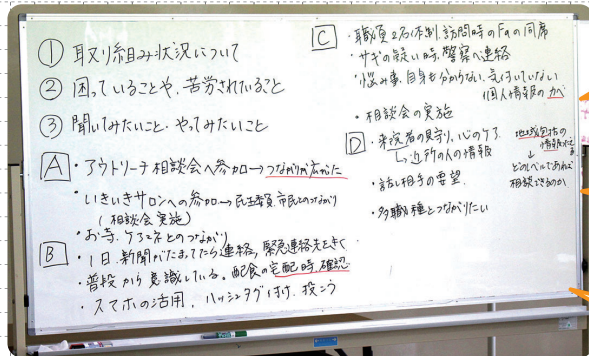 ① 取り組み状況について
② 困っていることや、苦労されていること
③ 聞いてみたいこと・やってみたいこと
A ・アウトリーチ相談会へ参加→つながりが広がった
・いきいきサロンへの参加→民主委員、市民とのつながり
(相談会実施)
・お寺、ケアマネとのつながり
B ・1日、新聞がたまってたら連絡、緊急連絡先をきく
・普段から意識している。配食の宅配時、確認
・スマホの活用、ハッシュタグ付け、投こう
C ・職員2名体制、訪問時のFaの同席
・サギの疑い時、警察へ連絡
・悩み事、自身も分からない、気付いていない
個人情報のカベ
・相談会の実施
D ・来院者の見守り、心のケア
→近所の人の情報
・話し相手の要望
・多職種とつながりたい
地域包括の
情報
↓
どのレベルであれば
相談できるのか